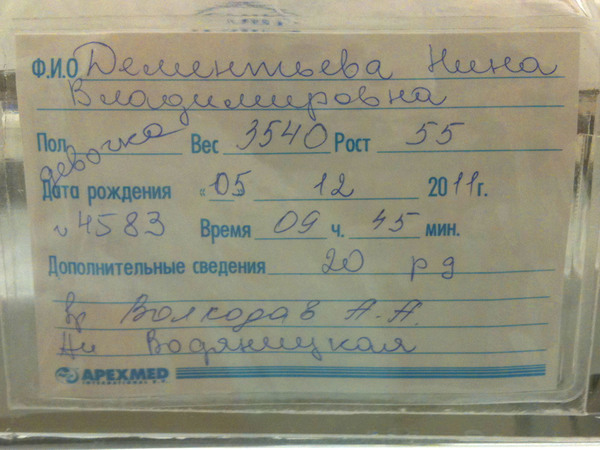 Ф.И.О Дементьева Нина
Владимировна
Пол девочка Вес 3540 Рост 55
Дата рождения «05 12 2011г.
№4583 Время 09 ч. 45 мин.
Дополнительные сведения 20 рд
Вр Волкодав А.А.
Ак Водяницкая
APEXMED
INTERNATIONAL B.V.